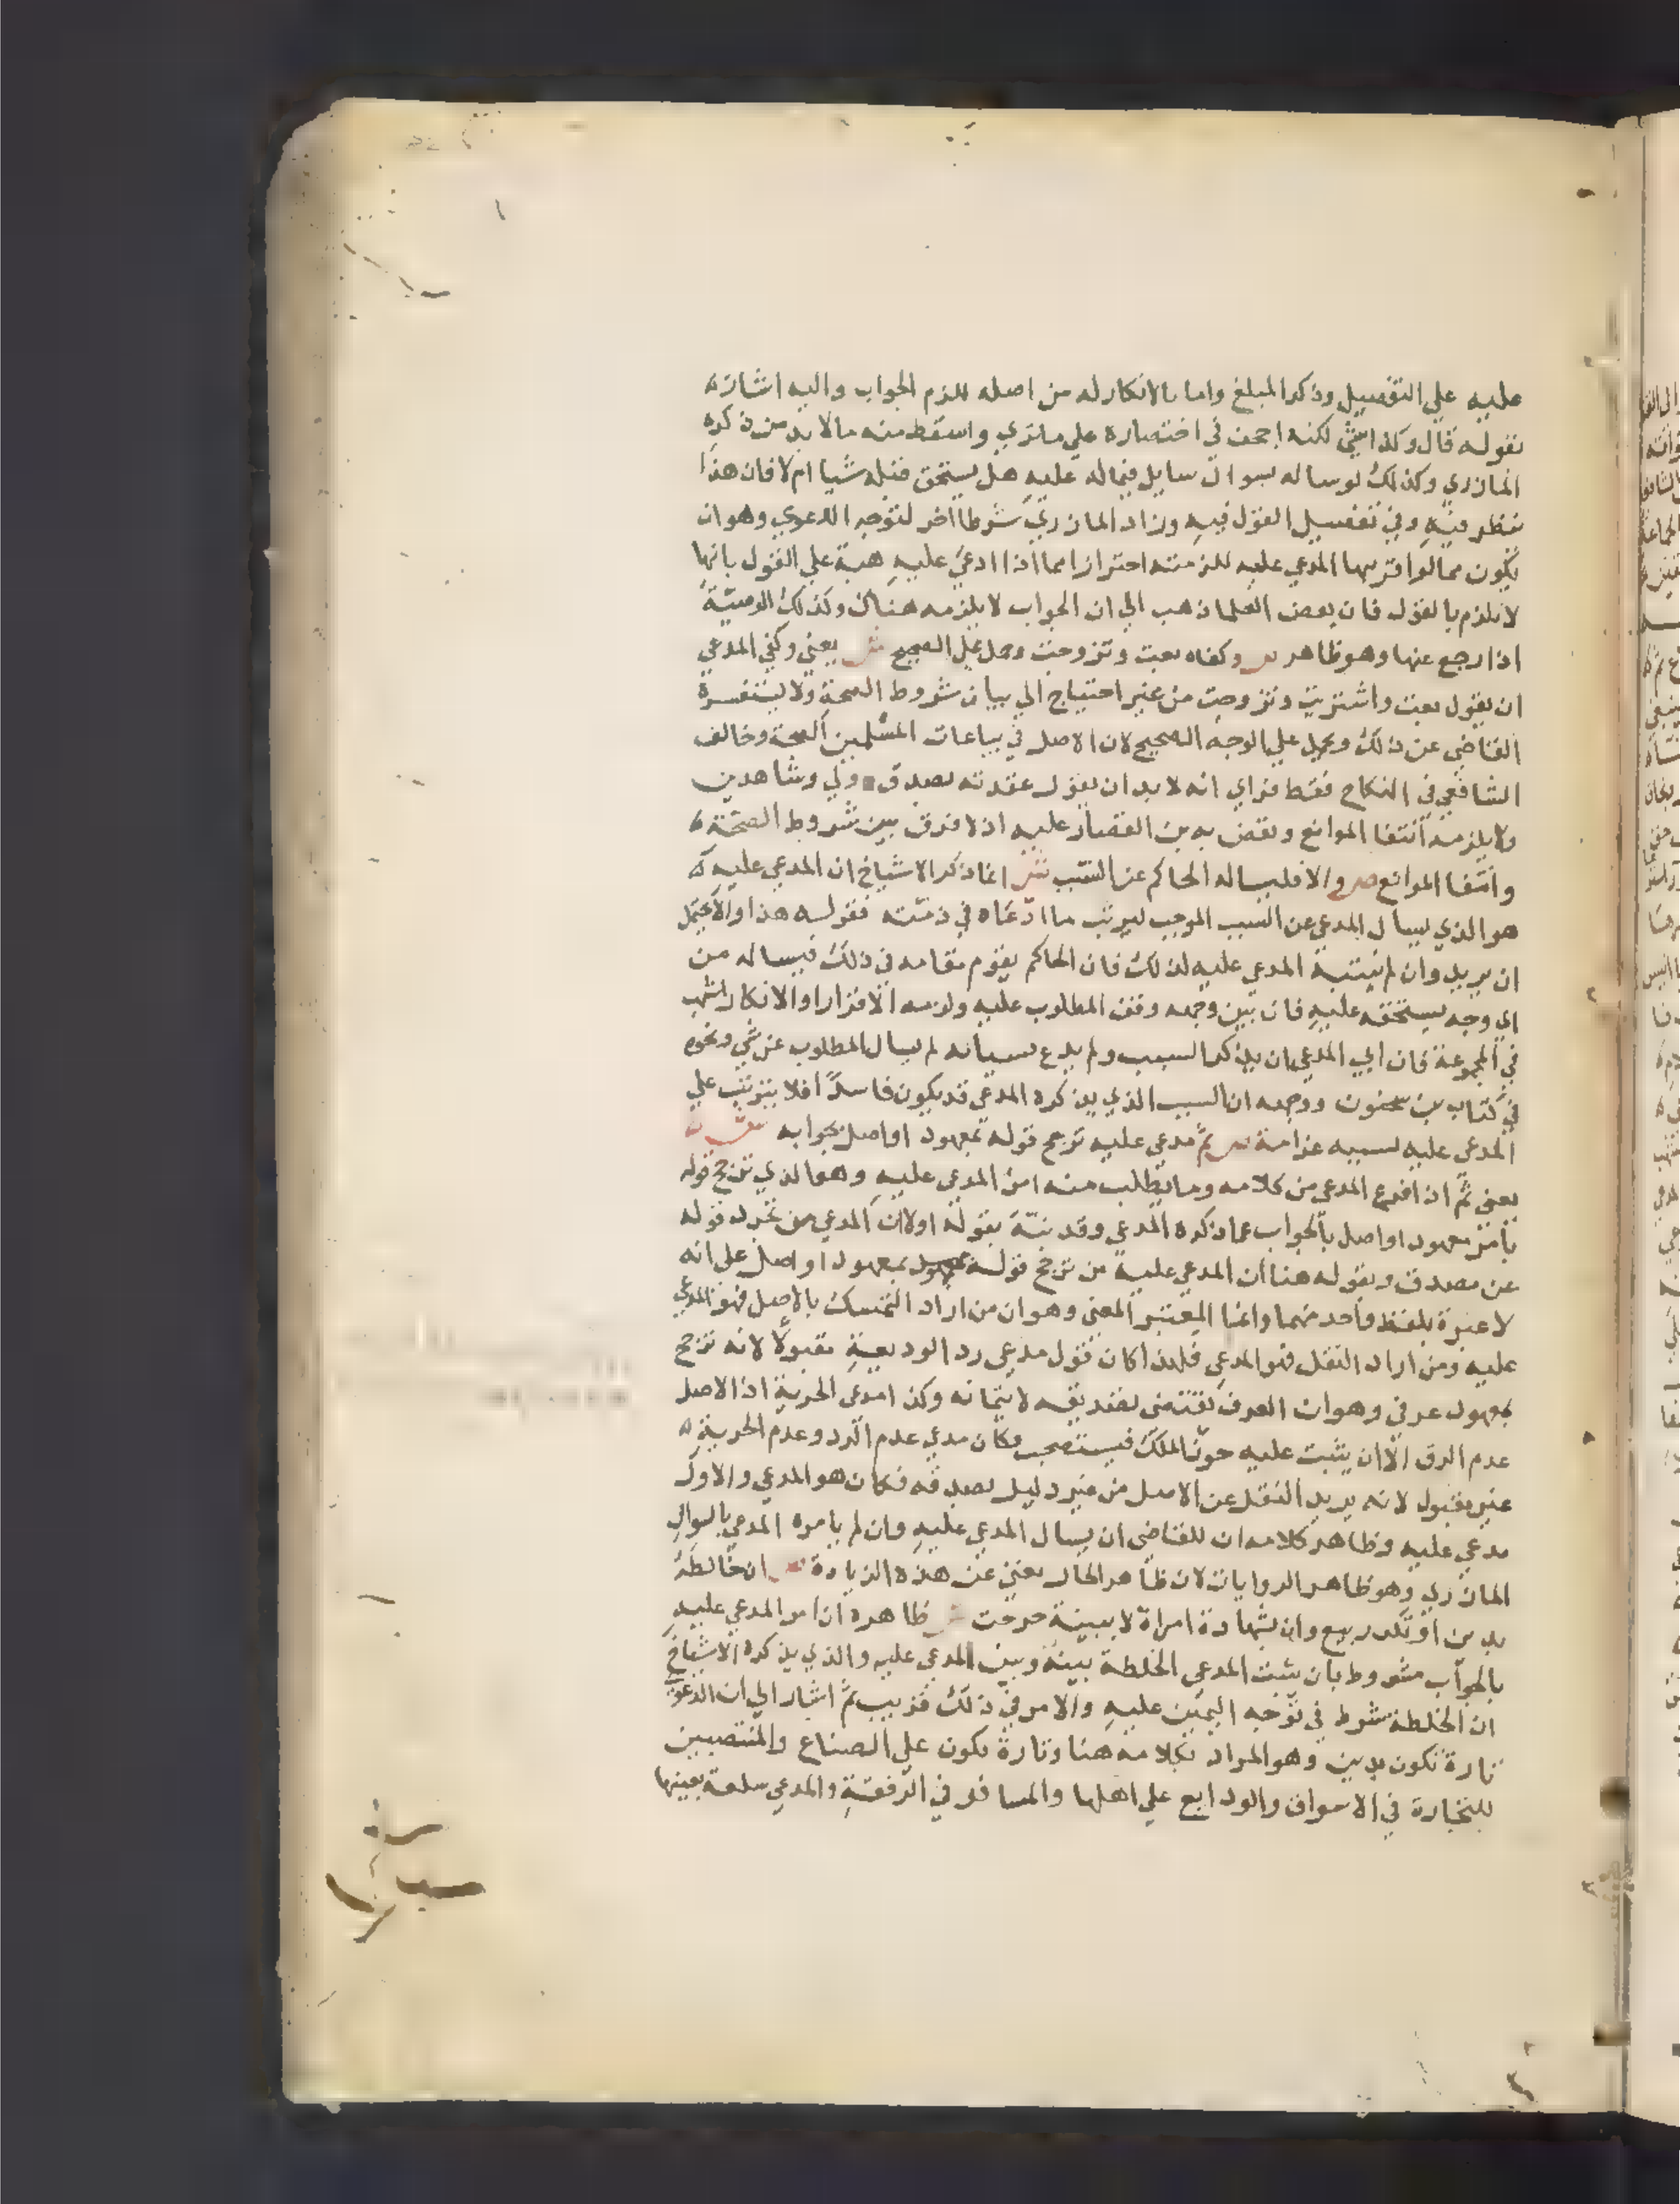 عليه علي التفصيل وذكر المبلغ واما بالانكار له من اصله للزم الجواب واليه اشارة
بقوله قال وكذا شي لكنه اجحف في اختصاره علي ما تري واسقط منه ما لا بد من ذكره
المازري وكذلك لو ساله بسوال سايل فيما له عليه هل يستحق قبله شيا ام لا فان هذا
ينظر فيه وفي تفصيل القول فيه وزاد المازري شرطا اخر لتوجه الدعوي وهو ان
يكون مما لو اقر بها المدعي عليه للزمته احترازا مما اذا ادعي عليه هبة علي القول بانها
لا تلزم بالقول فان بعض العلما ذهب الي ان الجواب لا يلزمه هناك وكذلك الوصية
اذا رجع عنها وهو ظاهر ص وكفاه بعت وتزوجت وحمل علي الصحيح ش يعني وكفي المدعي
ان يقول بعت واشتريت وتزوجت من غير احتياج الي بيان شروط الصحة ولا يستفسره
القاضي عن ذلك ويحمل علي الوجه الصحيح لان الاصل في بياعات المسلمين الصحة وخالف
الشافعي في النكاح فقط فراي انه لا بد ان يقول عقدته بصدق وولي وشاهدين
ولا يلزمه انتفا الموانع ونقض به بن القصار عليه اذ لا فرق بين شروط الصحة
وانتفا الموانع ص والا فليساله الحاكم عن السبب ش انما ذكر الاشياخ ان المدعي عليه
هو الذي يسال المدعي عن السبب الموجب لترتب ما ادعاه في ذمته فقوله هذا والا يحتمل
ان يريد وان لم ينتبه المدعي عليه لذلك فان الحاكم يقوم مقامه في ذلك فيساله من
اي وجه يستحقه عليه فان بين وجهه وقف المطلوب عليه ولزمه الاقرار او الانكار اشهب
في المجموعة فان ابي المدعي ان يذكر السبب ولم يدع نسيانه لم يسال المطلوب عن شي ونحوه
في كتاب بن سحنون ووجهه ان السبب الذي يذكره المدعي قد يكون فاسدا فلا يترتب علي
المدعي عليه بسببه غرامة ص ثم مدعي عليه ترجح قوله بمعهود او اصل بجوابه ش
يعني ثم اذا فرغ المدعي من كلامه وما يطلب منه امر المدعي عليه وهو الذي ترجح قوله
بامر معهود او اصل بالجواب عما ذكره المدعي وقد نبه بقوله اولا ان المدعي من تجرد قوله
عن مصدق وبقوله هنا ان المدعي عليه من ترجح قوله بمعهود او اصل علي انه
لا عبرة بلفظ واحد منهما وانما المعتبر المعني وهو ان من اراد التمسك بالاصل فهو المدعي
عليه ومن اراد النقل فهو المدعي فلهذا كان قول مدعي رد الوديعة مقبولا لانه ترجح
بمعهود عرفي وهو ان العرف يقتضي تصديقه لائتمانه وكذا مدعي الحرية اذ الاصل
عدم الرق الا ان يثبت عليه حوز الملك فيستصحب وكان مدعي عدم الرد وعدم الحرية
غير مقبول لانه يريد النقل عن الاصل من غير دليل يصدقه فكان هو المدعي والاول
مدعي عليه وظاهر كلامه ان للقاضي ان يسال المدعي عليه وان لم يامره المدعي بالسوال
المازري وهو ظاهر الروايات لان ظاهر الحال يغني عن هذه الزيادة ص ان خالطه
بدين او تكرر بيع وان بشهادة امراة لا ببينة جرحت ش ظاهره ان امر المدعي عليه
بالجواب مشروط بان يثبت المدعي الخلطة بينه وبين المدعي عليه والذي يذكره الاشياخ
ان الخلطة شرط في توجه اليمين عليه والامر في ذلك قريب ثم اشار الي ان الدعوي
تارة تكون بدين وهو المراد بكلامه هنا وتارة تكون علي الصناع والمنتصبين
للتجارة في الاسواق والودايع علي اهلها والمسافر في الرفقة والمدعي سلعة بعينها